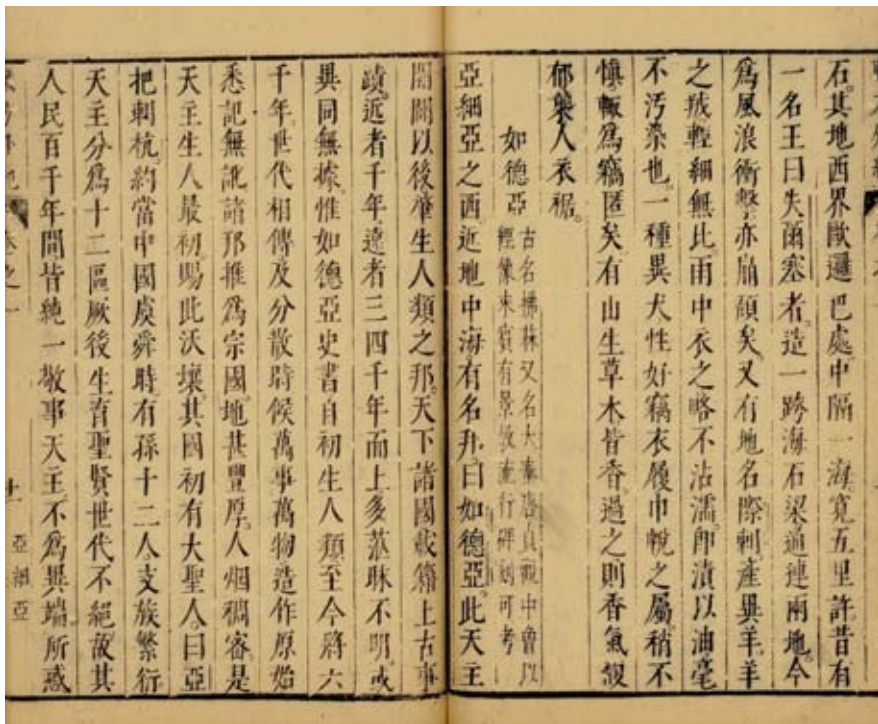 石。其地西界歐邏巴處。中隔一海寬五里許。昔有
一名王曰失爾塞者。造一跨海石梁通連兩地。今
爲風浪衝擊亦崩頹矣。又有地名際剌。產異羊。羊
之羢輕細無比。雨中衣之略不沾濡。卽漬以油毫
不汚染也。一種異犬性好竊衣履巾帨之屬。稍不
慎輒爲竊匿矣。有山生草木皆香。過之則香氣馥
郁襲人衣裾。
如德亞
古名拂菻又名大秦唐貞觀中曾以
經像來賓有景敎流行碑刻可考
亞細亞之西近地中海有名邦曰如德亞。此天主
開闢以後肇生人類之邦。天下諸國載籍上古事
蹟。近者千年遠者三四千年而上多茫昧不明。或
異同無據。惟如德亞史書自初生人類至今將六
千年。世代相傳及分散時候萬事萬物造作原始
悉記無訛諸邦推爲宗國。地甚豐厚。人烟稠密。是
天主生人最初。賜此沃壤。其國初有大聖人。曰亞
把剌杭。約當中國虞舜時。有孫十二人。支族繁衍
天主分爲十二區厥後生育聖賢世代不絕。故其
人民百千年間皆純一敬事天主。不爲異端。所惑
卷之一
十一
亞細亞